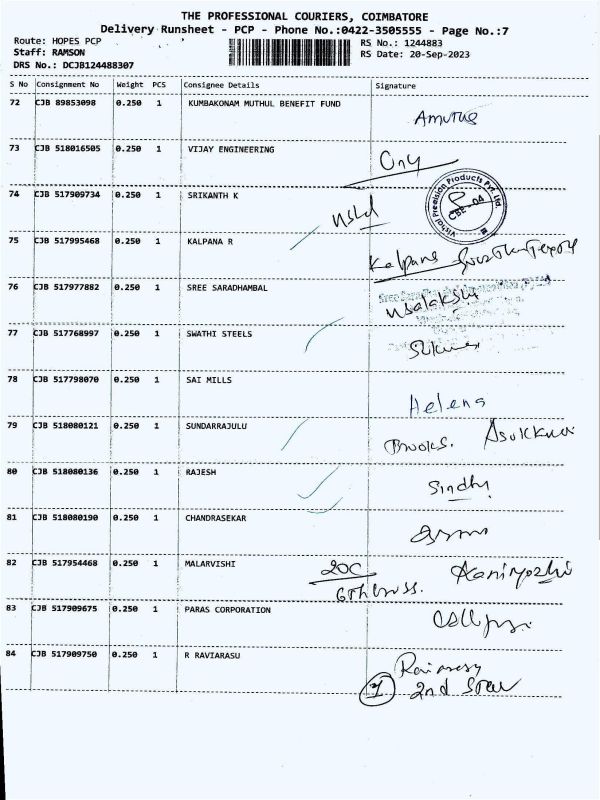 THE PROFESSIONAL COURIERS, COIMBATORE
Delivery Runsheet - PCP - Phone No.:0422-3505555 - Page No.:7
Route: HOPES PCP
Staff: RAMSON
DRS No.: DCJB124488307
RS No.: 1244883
RS Date: 20-Sep-2023
S No Consignment No Weight PCS Consignee Details Signature
72 CJB 89853098 0.250 1 KUMBAKONAM MUTHUL BENEFIT FUND
73 CJB 518016505 0.250 1 VIJAY ENGINEERING
74 CJB 517909734 0.250 1 SRIKANTH K
Vishal Precision Products Pvt. Ltd.
CBE - 04
75 CJB 517995468 0.250 1 KALPANA R Kalpana
76 CJB 517977882 0.250 1 SREE SARADHAMBAL
77 CJB 517768997 0.250 1 SWATHI STEELS
78 CJB 517798070 0.250 1 SAI MILLS Helena
79 CJB 518080121 0.250 1 SUNDARRAJULU
80 CJB 518080136 0.250 1 RAJESH Sindhu
81 CJB 518080190 0.250 1 CHANDRASEKAR
82 CJB 517954468 0.250 1 MALARVISHI 20C Kanimozhi
6th cross.
83 CJB 517909675 0.250 1 PARAS CORPORATION
84 CJB 517909750 0.250 1 R RAVIARASU
1 2nd